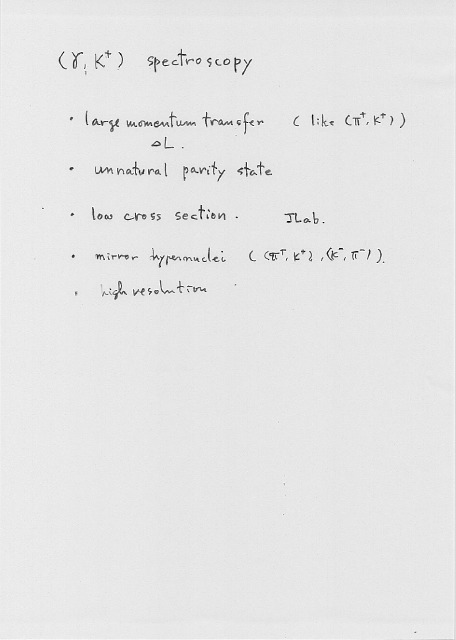 (γ, K⁺) spectroscopy
· large momentum transfer ( like (π⁺, K⁺) )
ΔL.
· unnatural parity state
· low cross section. JLab.
· mirror hypernuclei ( (π⁺, K⁺), (K⁻, π⁻) ).
· high resolution